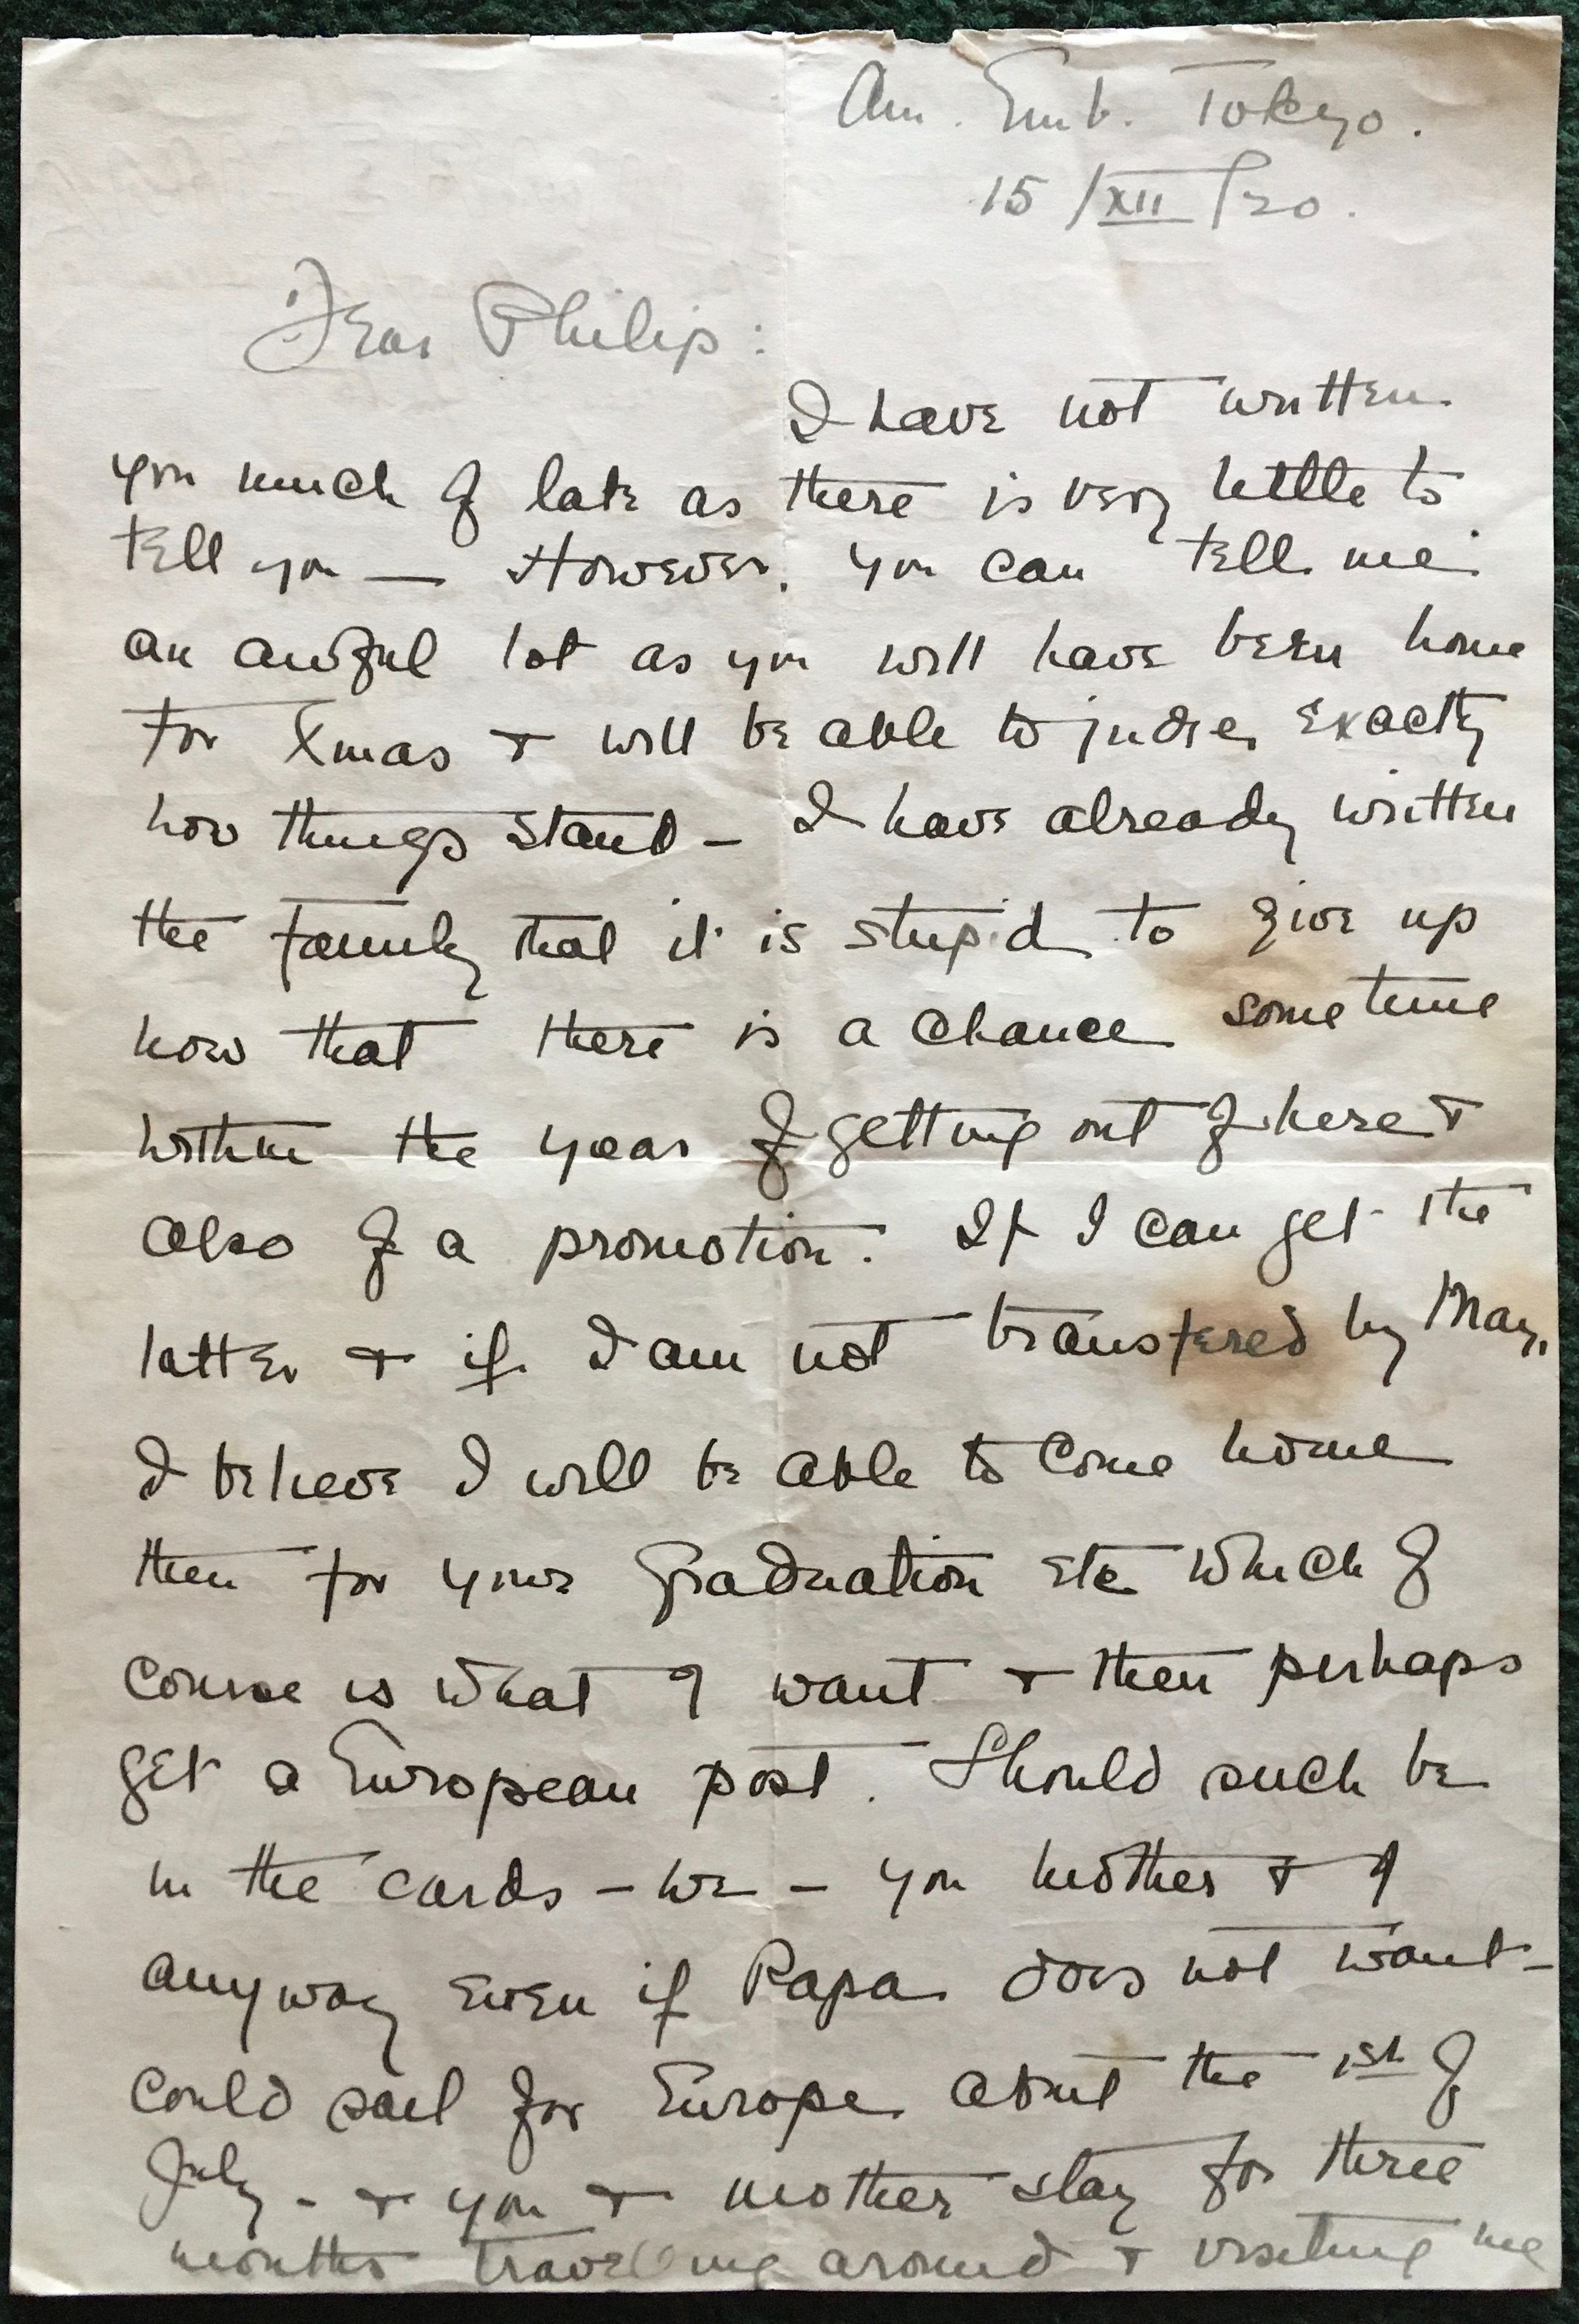 Am. Emb. Tokyo.
15/XII/20.
Dear Philip:
I have not written
you much of late as there is very little to
tell you — However, you can tell me
an awful lot as you will have been home
for Xmas & will be able to judge exactly
how things stand – I have already written
the family that it is stupid to give up
now that there is a chance sometime
within the year of getting out of here &
also of a promotion. If I can get the
latter & if I am not transfered by May,
I believe I will be able to come home
then for your graduation etc which of
course is what I want & then perhaps
get a European post. Should such be
in the cards – we – you mother & I
anyway even if Papa does not want –
could sail for Europe about the 1st of
July – & you & mother stay for three
months travelling around & visiting me